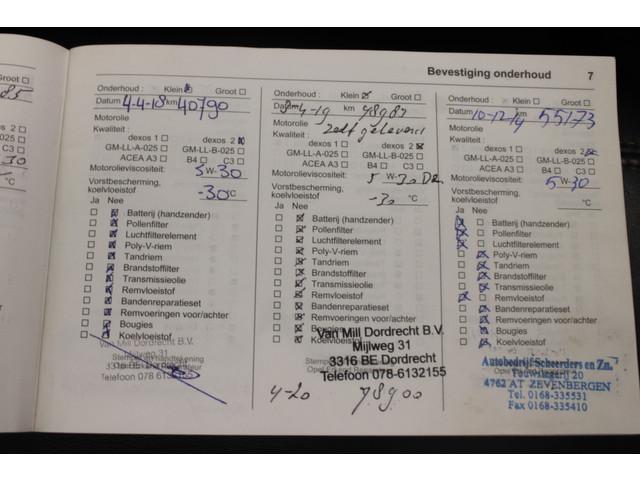 Bevestiging onderhoud 7
Groot
85
dexos 2
-025
C3
30
°C
Onderhoud : Klein Groot
Datum 4-4-18 km 40790
Motorolie
Kwaliteit :
dexos 1 dexos 2
GM-LL-A-025 GM-LL-B-025
ACEA A3 B4 C3
Motorolieviscositeit: 5 W-30
Vorstbescherming,
koelvloeistof -30 °C
Ja Nee
Batterij (handzender)
Pollenfilter
Luchtfilterelement
Poly-V-riem
Tandriem
Brandstoffilter
Transmissieolie
Remvloeistof
Bandenreparatieset
Remvoeringen voor/achter
Bougies
Koelvloeistof
Van Mill Dordrecht B.V.
Mijlweg 31
Telefoon 078-6132155
Onderhoud : Klein Groot
Datum 8-4-19 km 48987
Motorolie zelf geleverd
Kwaliteit :
dexos 1 dexos 2
GM-LL-A-025 GM-LL-B-025
ACEA A3 B4 C3
Motorolieviscositeit: 5 W-30
Vorstbescherming,
koelvloeistof -30 °C
Ja Nee
Batterij (handzender)
Pollenfilter
Luchtfilterelement
Poly-V-riem
Tandriem
Brandstoffilter
Transmissieolie
Remvloeistof
Bandenreparatieset
Remvoeringen voor/achter
Bougies
Koelvloeistof
Van Mill Dordrecht B.V.
Mijlweg 31
3316 BE Dordrecht
Telefoon 078-6132155
4-20 78900
Onderhoud : Klein Groot
Datum 10-12-19 km 55173
Motorolie
Kwaliteit :
dexos 1 dexos 2
GM-LL-A-025 GM-LL-B-025
ACEA A3 B4 C3
Motorolieviscositeit: 5 W-30
Vorstbescherming,
koelvloeistof °C
Ja Nee
Batterij (handzender)
Pollenfilter
Luchtfilterelement
Poly-V-riem
Tandriem
Brandstoffilter
Transmissieolie
Remvloeistof
Bandenreparatieset
Remvoeringen voor/achter
Bougies
Koelvloeistof
Autobedrijf Scheerders en Zn.
20
4762 AT ZEVENBERGEN
Tel. 0168-335531
Fax 0168-335410